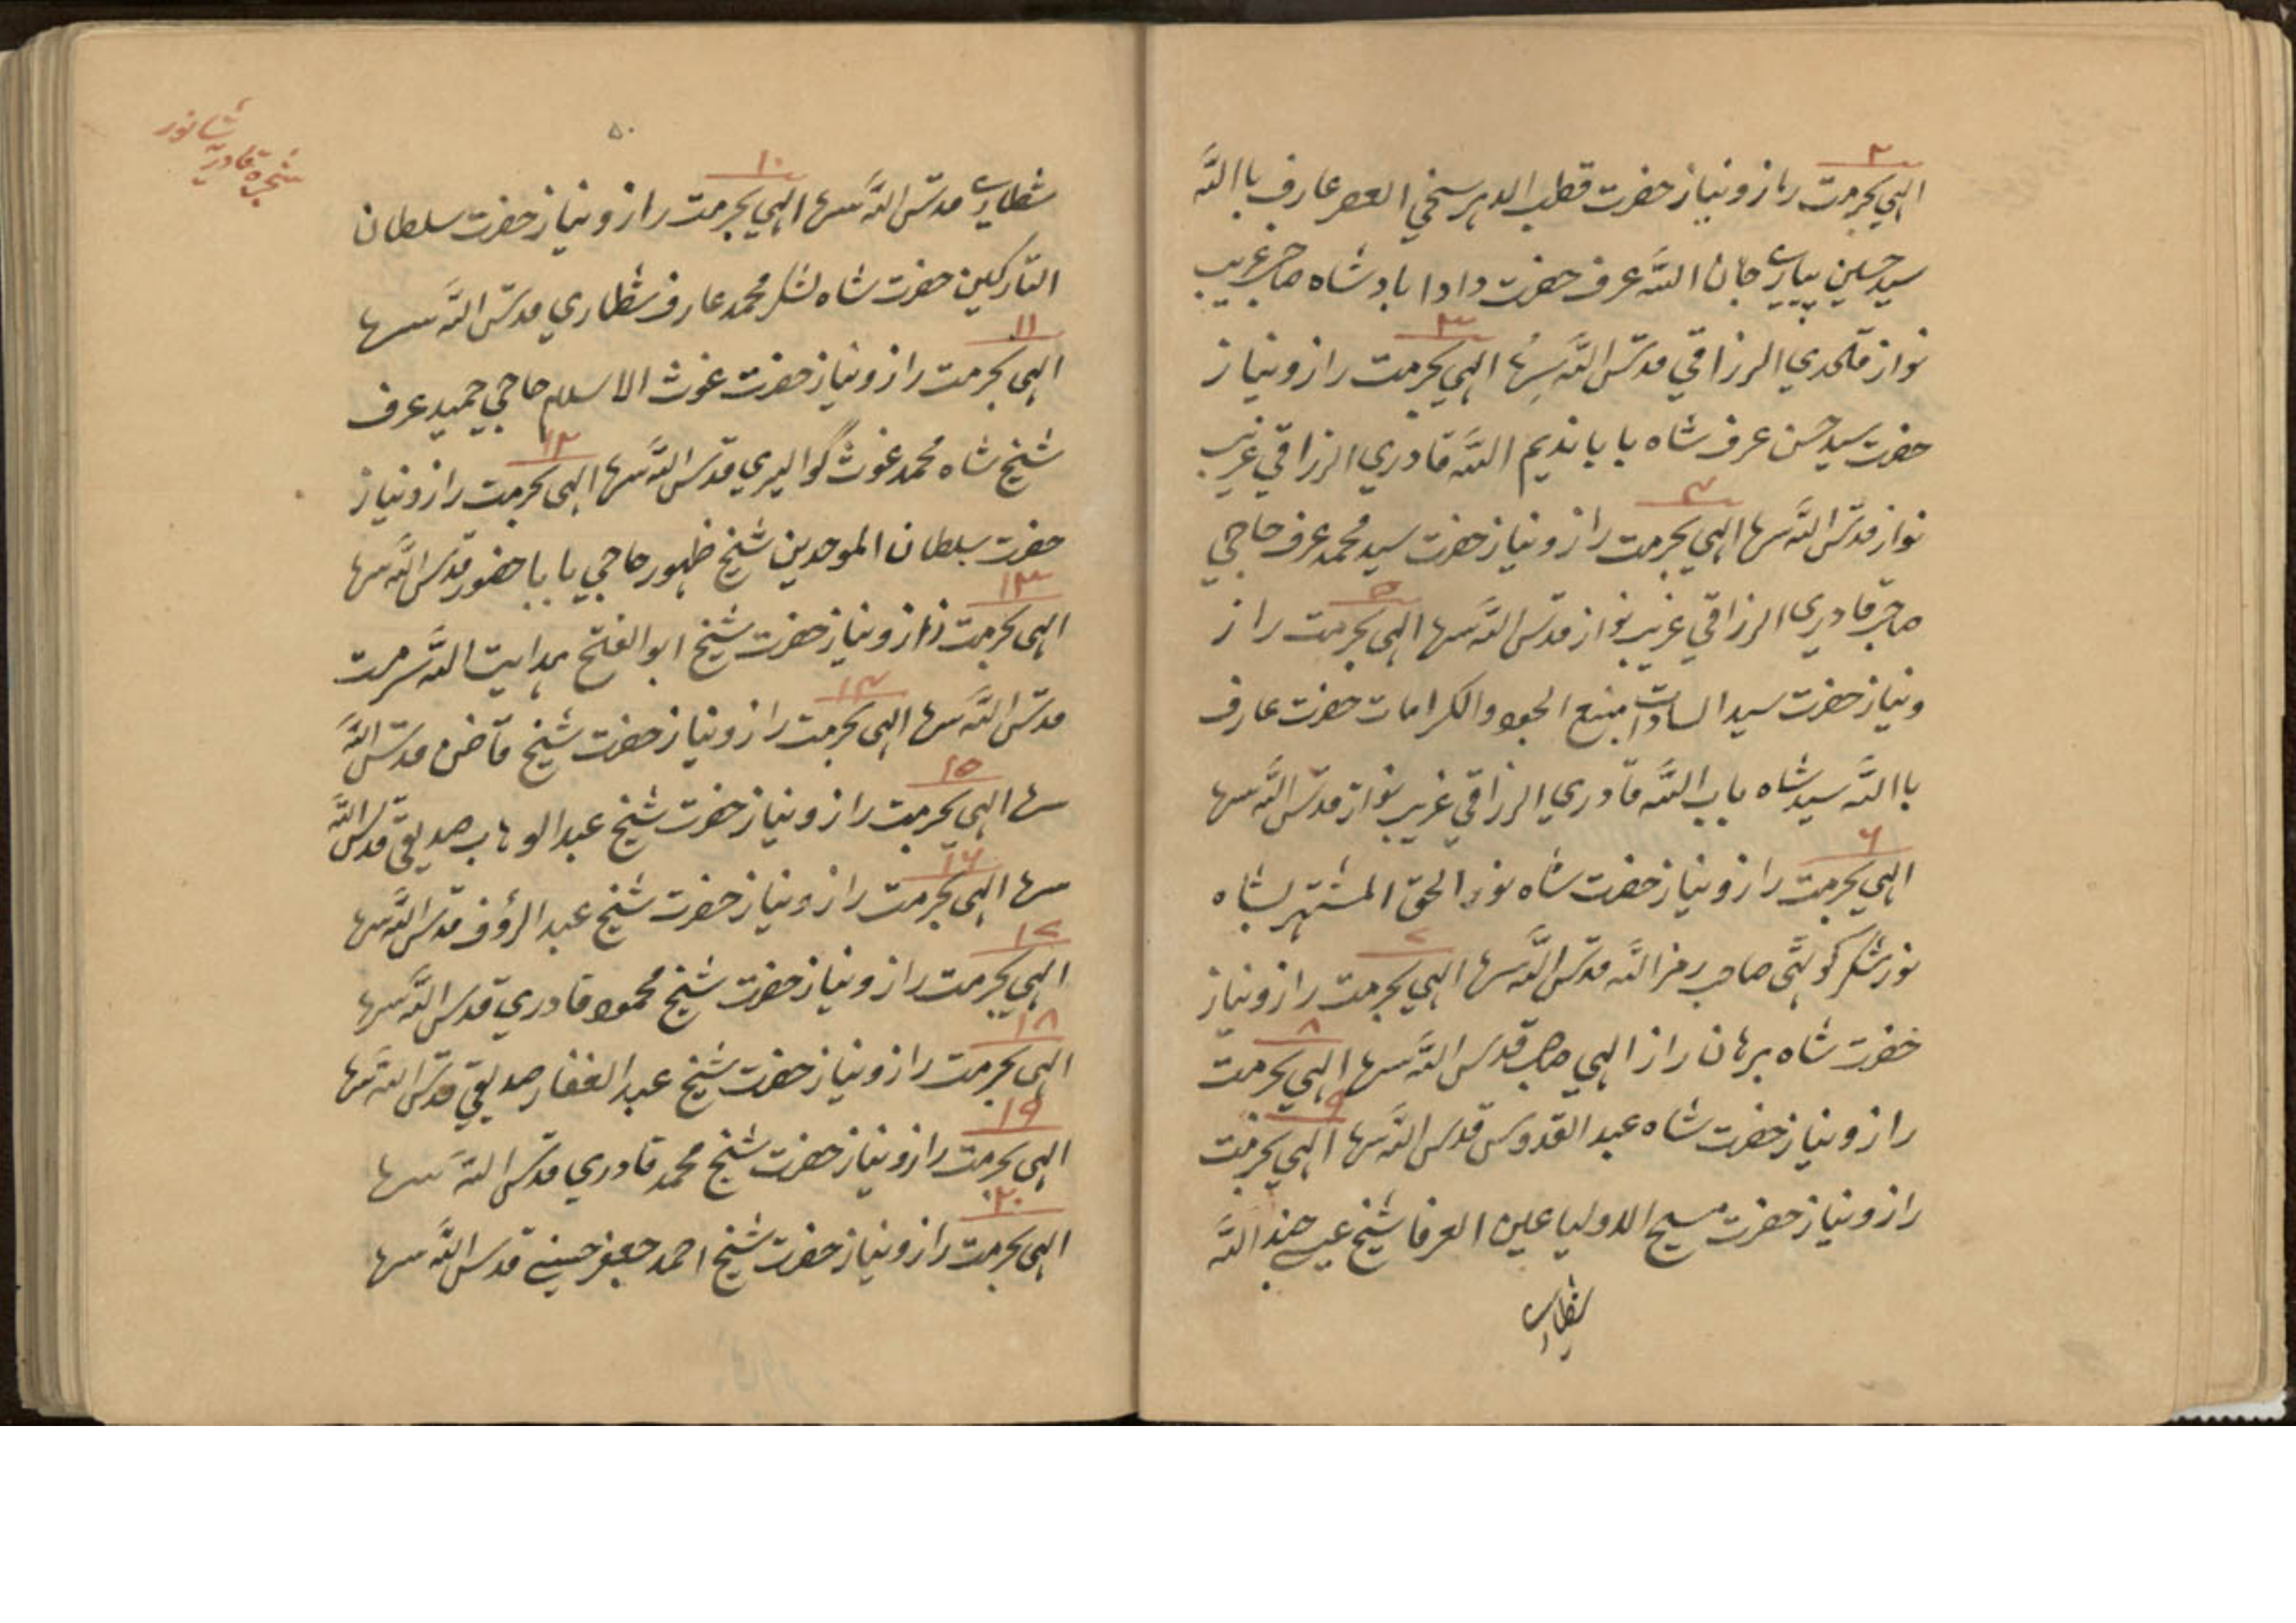 ۲
الهي بحرمت راز و نياز حضرت قطب الدهر سخي العصر عارف باالله
سيد حسين پيارے جان الله عرف حضرت دادا بادشاه صاحب غريب
۳
نواز قلندري الرزاقي قدس الله سرها الهي بحرمت راز و نياز
حضرت سيد حسن عرف شاه بابا نديم الله قادري الرزاقي غريب
۴
نواز قدس الله سرها الهي بحرمت راز و نياز حضرت سيد محمد عرف حاجي
۵
صاحب قادري الرزاقي غريب نواز قدس الله سرها الهي بحرمت راز
و نياز حضرت سيد السادات منبع الجود والكرامات حضرت عارف
باالله سيد شاه باب الله قادري الرزاقي غريب نواز قدس الله سرها
۶
الهي بحرمت راز و نياز حضرت شاه نور الحق المشتهر بشاه
۷
نور صاحب رمز الله قدس الله سرها الهي بحرمت راز و نياز
۸
حضرت شاه برهان راز الهي صاحب قدس الله سرها الهي بحرمت
۹
راز و نياز حضرت شاه عبد القدوس قدس الله سرها الهي بحرمت
راز و نياز حضرت مسيح الاوليا عين العرفا شيخ عيسے جند الله
شطارے
شانور
شجرهٔ قادريه
۵۰
۱۰
شطارے قدس الله سرها الهي بحرمت راز و نياز حضرت سلطان
التاركين حضرت شاه لشكر محمد عارف شطاري قدس الله سرها
۱۱
الهي بحرمت راز و نياز حضرت غوث الاسلام حاجي حميد عرف
۱۲
شيخ شاه محمد غوث گواليري قدس الله سرها الهي بحرمت راز و نياز
حضرت سلطان الموحدين شيخ ظهور حاجي بابا حضور قدس الله سرها
۱۳
الهي بحرمت راز و نياز حضرت شيخ ابو الفتح هدايت الله سرمست
۱۴
قدس الله سرها الهي بحرمت راز و نياز حضرت شيخ قاضن قدس الله
۱۵
سرها الهي بحرمت راز و نياز حضرت شيخ عبد الوهاب صديقي قدس الله
۱۶
سرها الهي بحرمت راز و نياز حضرت شيخ عبد الرؤف قدس الله سرها
۱۷
الهي بحرمت راز و نياز حضرت شيخ محمود قادري قدس الله سرها
۱۸
الهي بحرمت راز و نياز حضرت شيخ عبد الغفار صديقي قدس الله سرها
۱۹
الهي بحرمت راز و نياز حضرت شيخ محمد قادري قدس الله سرها
۲۰
الهي بحرمت راز و نياز حضرت شيخ احمد جعفر حسينے قدس الله سرها